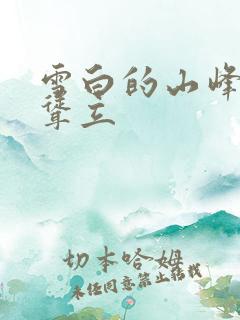 雪白的山峰
耸立
切本哈姆
未经同意禁止转载